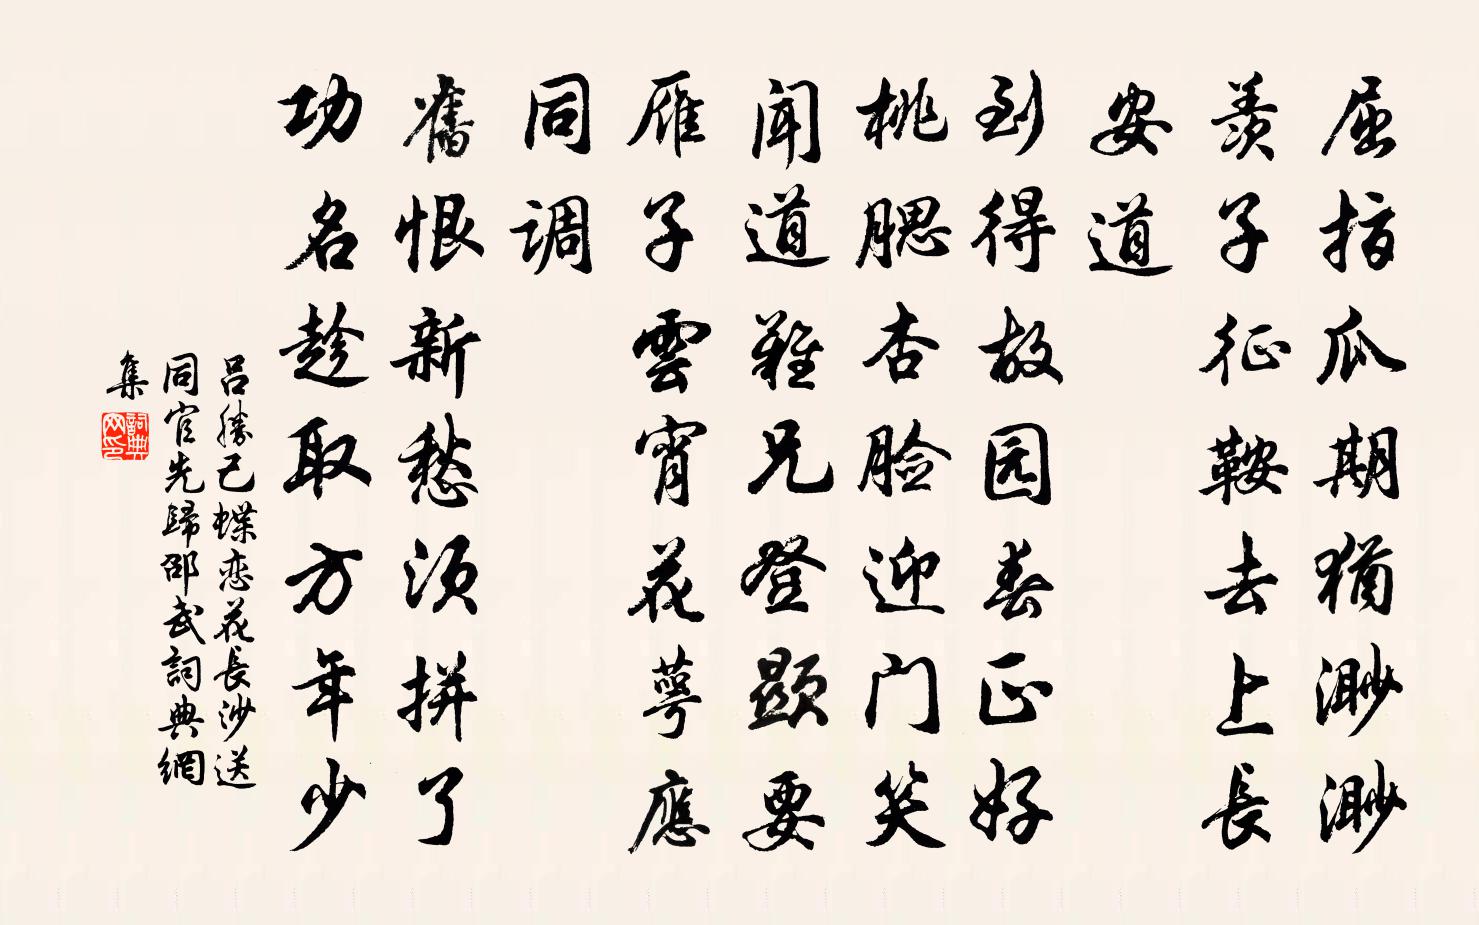 屈指瓜期猶渺渺
羨子征鞍去上長
安道
到得故园春正好
桃腮杏脸迎门笑
闻道難兄登顯要
雁子雲霄花萼應
同调
舊恨新愁须拼了
功名趁取方年少
吕勝己蝶恋花長沙送
同官先歸邵武詞典網
集
詞典
网印